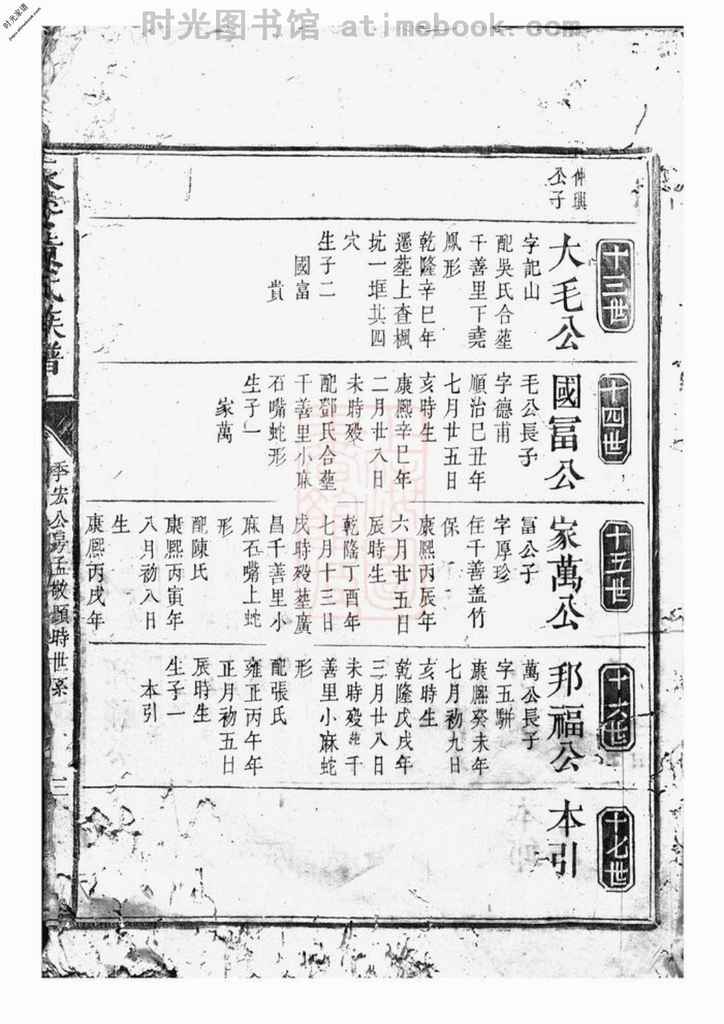 时光图书馆 atimebook.com
时光家谱
仲興
公子
十三世
大毛公
字記山
配吳氏合葬
千善里下堯
鳳形
乾隆辛巳年
遷葬上查楓
坑一堆其四
穴
生子二
國富
貴
十四世
國冨公
毛公長子
字德甫
順治己丑年
七月廿五日
亥時生
康熙辛巳年
二月廿八日
未時殁
配鄧氏合葬
千善里小麻
石嘴蛇形
生子一
家萬
十五世
家萬公
冨公子
字厚珍
住千善盖竹
保
康熙丙辰年
六月廿五日
辰時生
乾隆丁酉年
七月十三日
戌時殁葬廣
昌千善里小
麻石嘴上蛇
形
配陳氏
康熙丙寅年
八月初八日
生
康熙丙戌年
十六世
邦福公
萬公長子
字五駢
康熙癸未年
七月初九日
亥時生
乾隆戊戌年
三月廿八日
未時殁葬千
善里小麻蛇
形
配張氏
雍正丙午年
正月初五日
辰時生
生子一
本引
十七世
本引
氏族譜
季宏公房孟敬顯時世系
三